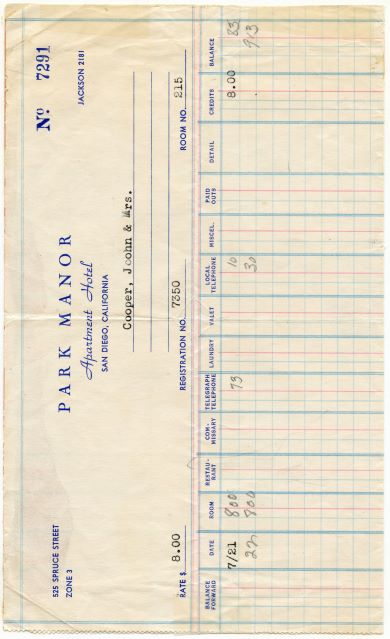 525 SPRUCE STREET
ZONE 3
Nº 7291
PARK MANOR
Apartment Hotel
SAN DIEGO, CALIFORNIA
JACKSON 2181
Cooper, Joohn & Mrs.
RATE $ 8.00 REGISTRATION NO. 7350 ROOM NO. 215
BALANCE FORWARD DATE ROOM RESTAU-RANT COM-MISSARY TELEGRAPH TELEPHONE LAUNDRY VALET LOCAL TELEPHONE MISCEL. PAID OUTS DETAIL CREDITS BALANCE
7/21 800 73 10 8.00 83
22 800 30 913